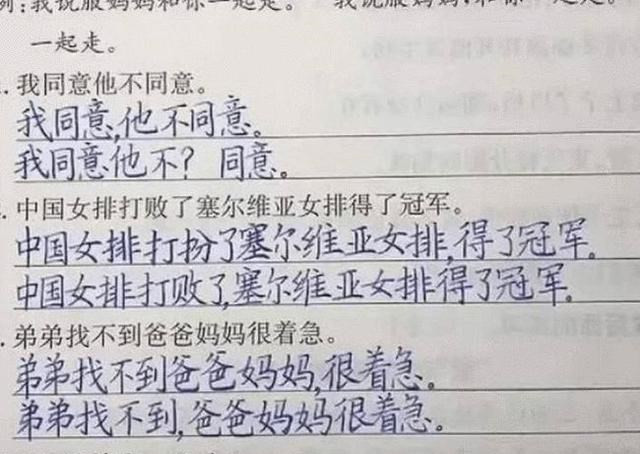 例:我说服妈妈和你一起走。 我说服妈妈,和你一起走。
一起走。
.我同意他不同意。
我同意,他不同意。
我同意他不?同意。
.中国女排打败了塞尔维亚女排得了冠军。
中国女排打扮了塞尔维亚女排,得了冠军。
中国女排打败了,塞尔维亚女排得了冠军。
.弟弟找不到爸爸妈妈很着急。
弟弟找不到爸爸妈妈,很着急。
弟弟找不到,爸爸妈妈很着急。